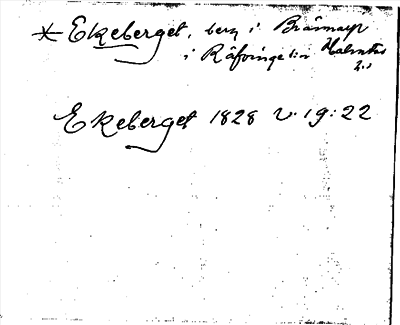 * Ekeberget, berg i Brännarp
i Räfvinge s:n Halmstads
h:d
Ekeberget 1828 v. 19:22